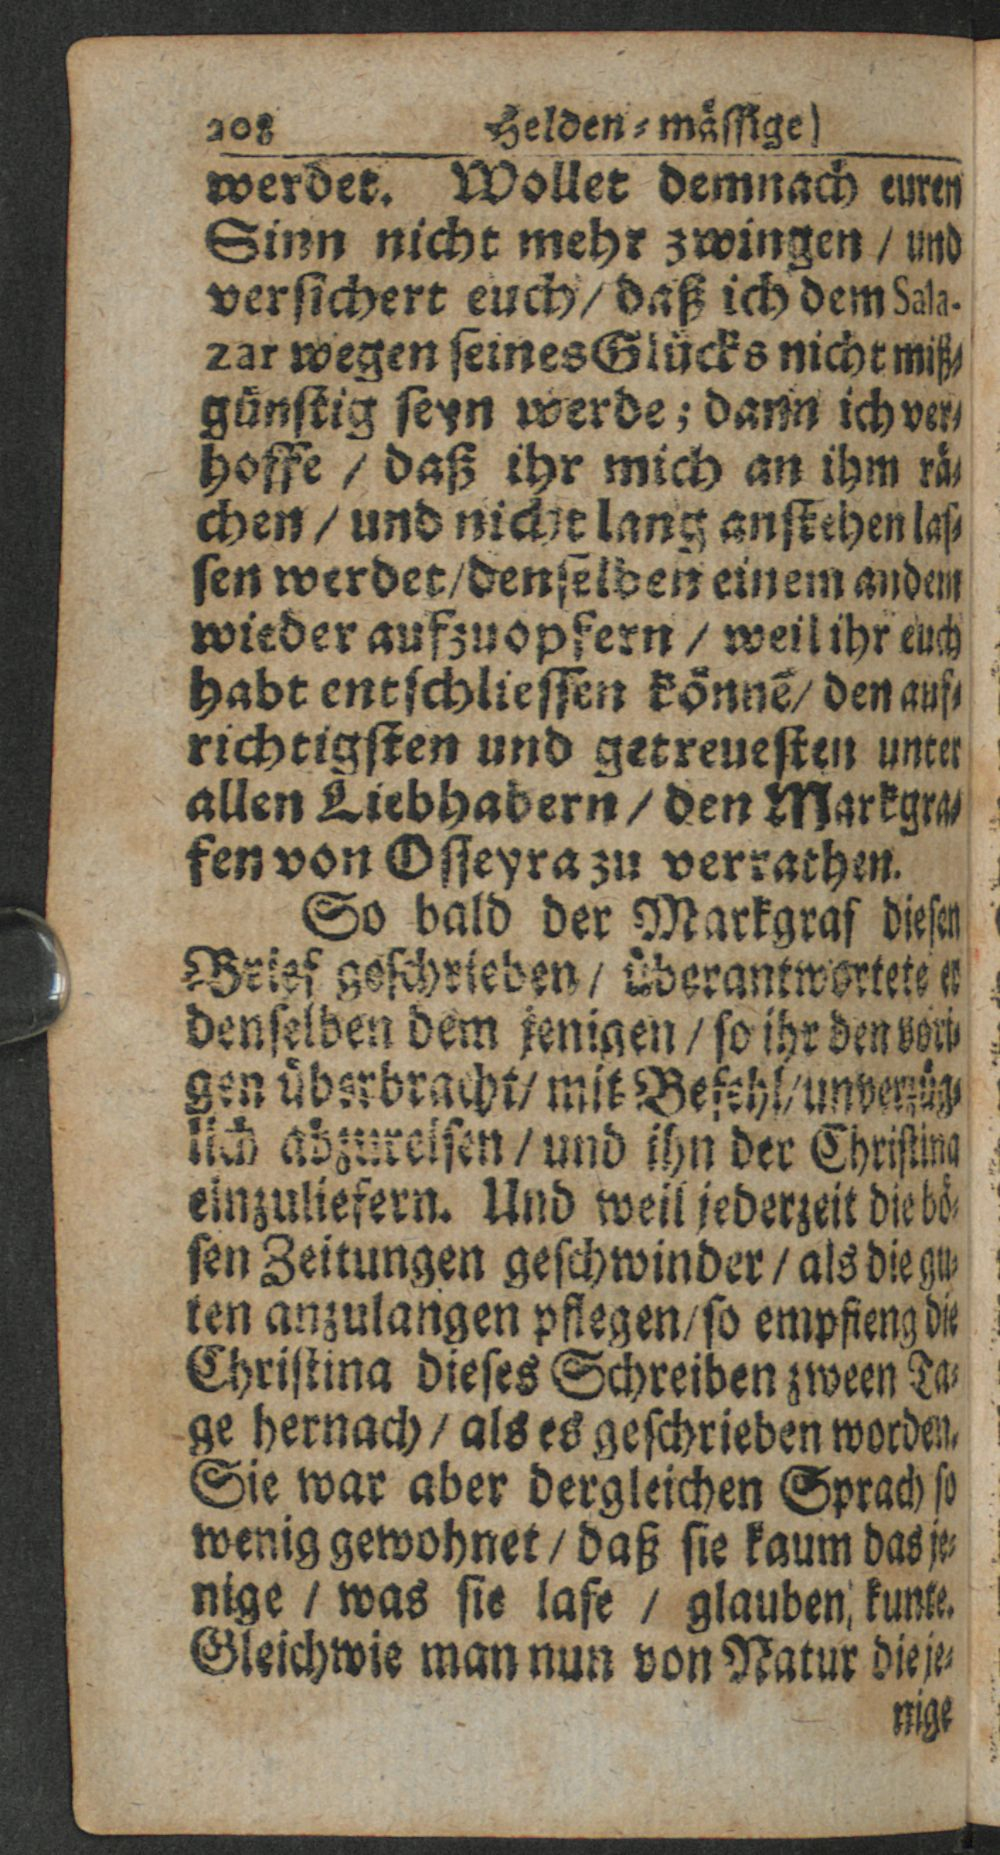 208 Helden-mässige)
werdet. Wollet demnach euren
Sinn nicht mehr zwingen / und
versichert euch / daß ich dem Sala-
zar wegen seines Glücks nicht miß-
günstig seyn werde; dann ich ver-
hoffe / daß ihr mich an ihm rä-
chen / und nicht lang anstehen las-
sen werdet / denselben einem andern
wieder aufzuopfern / weil ihr euch
habt entschliessen könnē / den auf-
richtigsten und getreuesten unter
allen Liebhabern / den Markgra-
fen von Osseyra zu verrathen.
So bald der Markgraf diesen
Brief geschrieben / überantwortete er
denselben dem jenigen / so ihr den vori-
gen überbracht / mit Befehl / unverzüg-
lich abzureisen / und ihn der Christina
einzuliefern. Und weil jederzeit die bö-
sen Zeitungen geschwinder / als die gu-
ten anzulangen pflegen / so empfieng die
Christina dieses Schreiben zween Ta-
ge hernach / als es geschrieben worden.
Sie war aber dergleichen Sprach so
wenig gewohnet / daß sie kaum das je-
nige / was sie lase / glauben kunte.
Gleichwie man nun von Natur die je-
nige